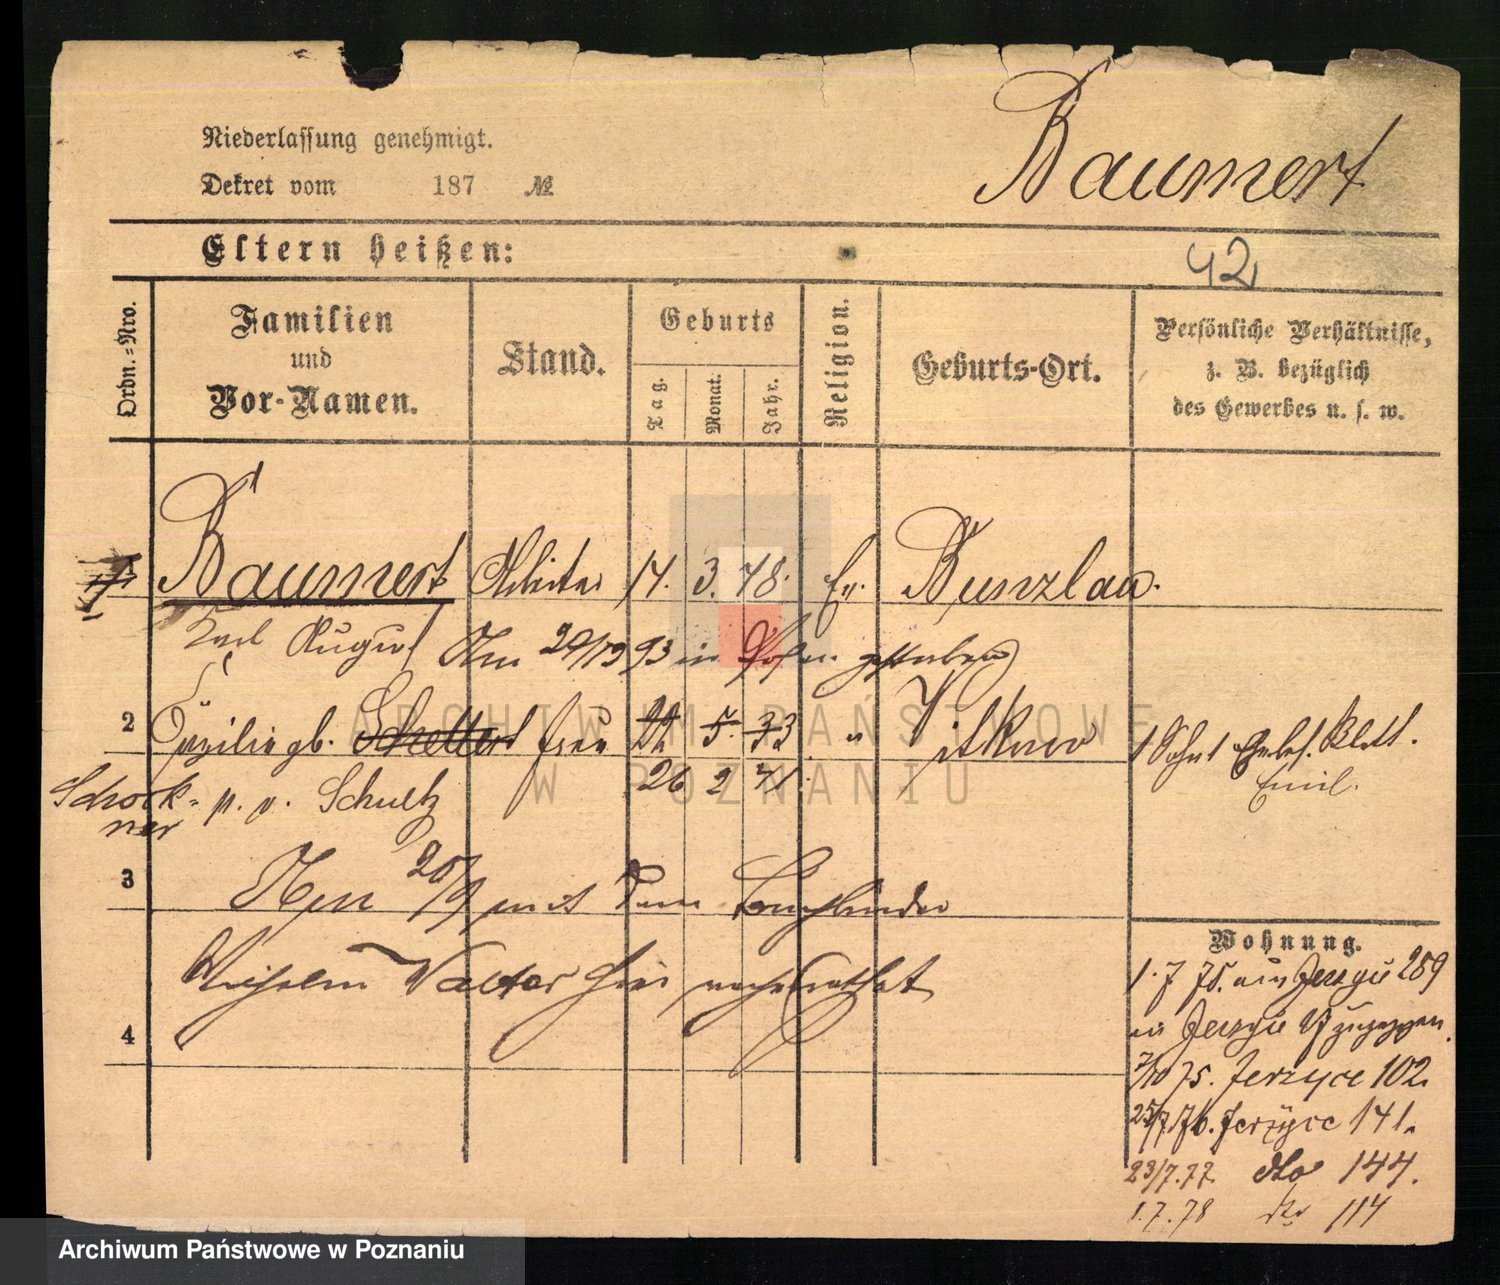 Niederlassung genehmigt.
Dekret vom 187 №
Baumert
Eltern heißen:
42
Ordn.-Nro.
Familien
und
Vor-Namen.
Stand.
Geburts
Tag.
Monat.
Jahr.
Religion.
Geburts-Ort.
Persönliche Verhältnisse,
z. B. bezüglich
des Gewerbes u. s. w.
1 Baumert Arbeiter 14. 3. 48. Ev. Bunzlau.
Karl August
Am 29/12 93 in Posen gestorben
2 gb. Schellert Frau 5. 33 " Witkowo 1 Sohn
Emil.
Schock-
ner
p. v. Schultz 26 2 41.
3 Am 20/9 mit dem
Wilhelm Valtor hier
4
Wohnung.
1. 7 75. 289
7/10 75. Jerzyce 102.
25/7. 76. Jerzyce 141.
23/7. 77. dto 144.
1. 7. 78 dto 114
ARCHIWUM PAŃSTWOWE
W POZNANIU
Archiwum Państwowe w Poznaniu